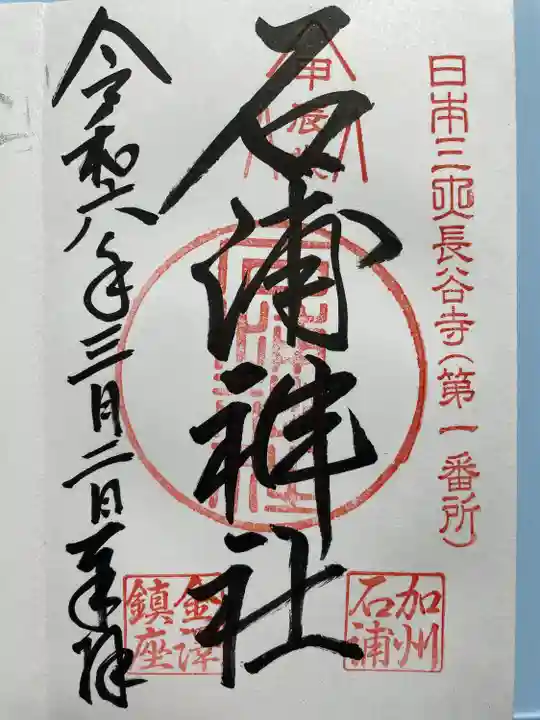 日本三大長谷寺(第一番所)
加州
石浦
甲辰
石浦神社
金澤
鎮座
令和六年三月二日奉拝